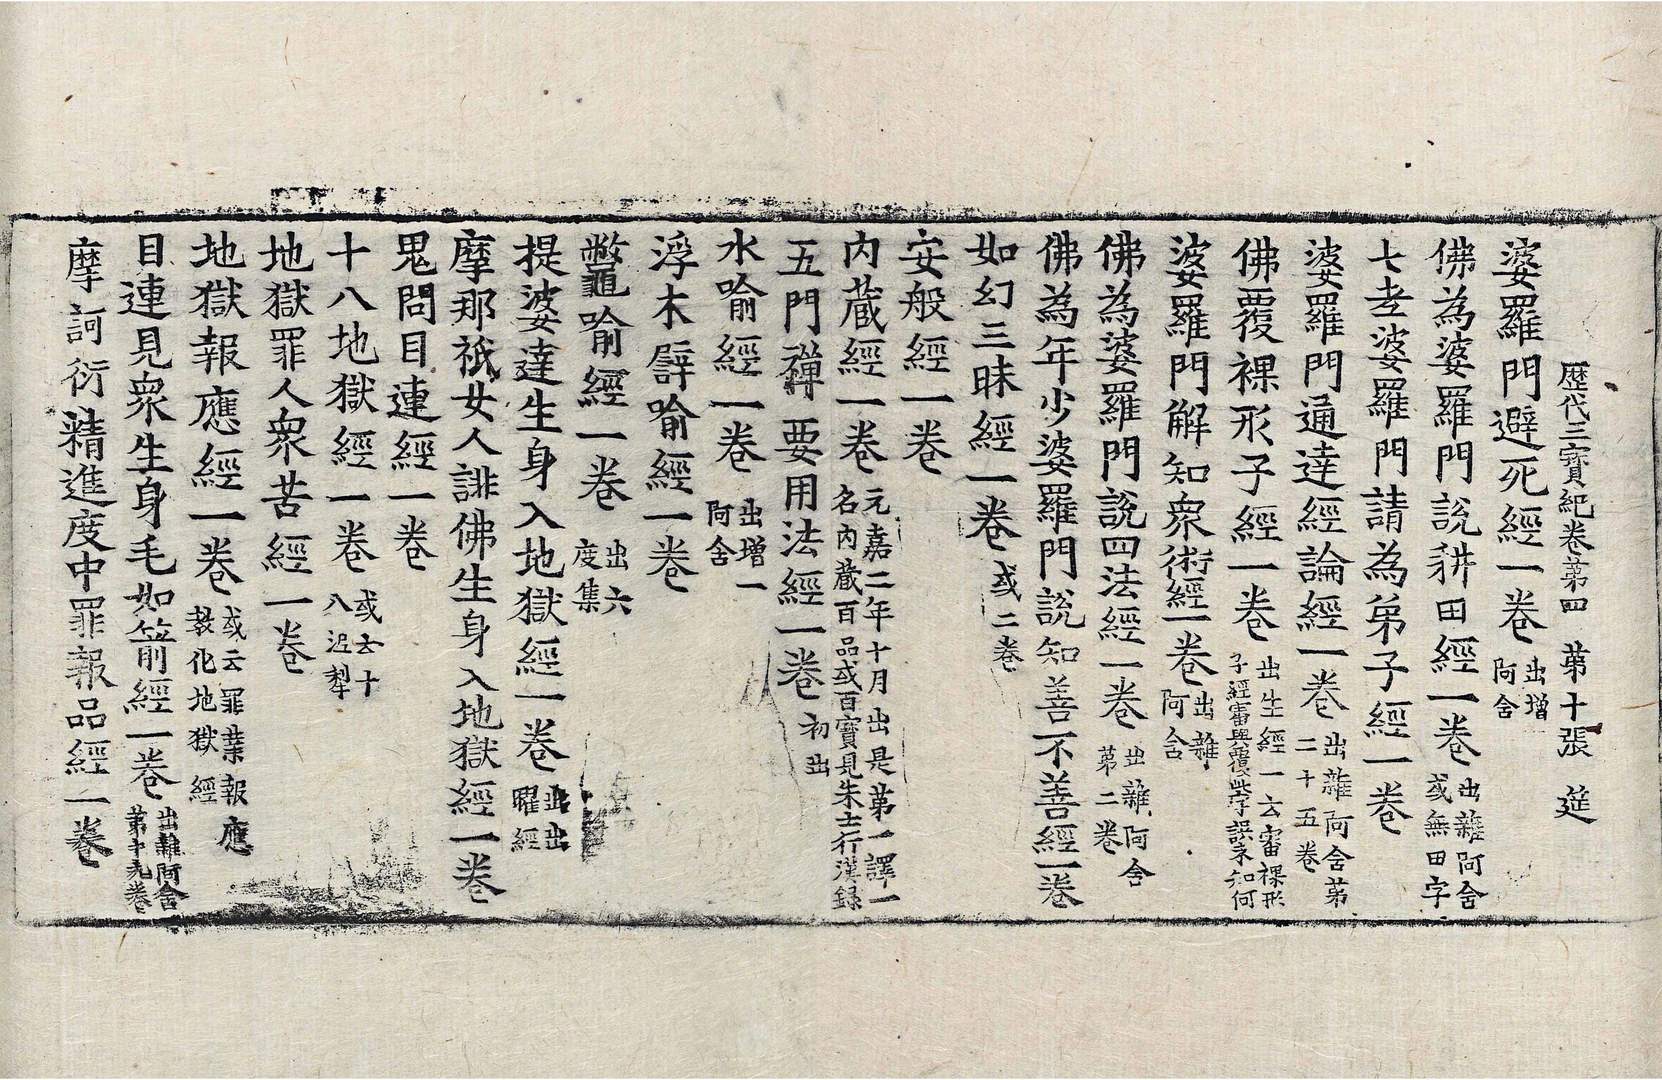 歷代三寶紀卷第四　第十張　筵
婆羅門避死經一卷 出增阿含
佛為婆羅門說耕田經一卷 出雜阿含或無田字
七老婆羅門請為弟子經一卷
婆羅門通達經論經一卷 出雜阿含第二十五卷
佛覆裸形子經一卷 出生經一云甯裸形子經甯與覆些字誤未知何
婆羅門解知眾術經一卷 出雜阿含
佛為婆羅門說四法經一卷 出雜阿含第二卷
佛為年少婆羅門說知善不善經一卷
如幻三昧經一卷 或二卷
安般經一卷
內藏經一卷 元嘉二年十月出是第一譯一名內藏百品或百寶見朱士行漢錄
五門禪要用法經一卷 初出
水喻經一卷 出增一阿含
浮木譬喻經一卷
鱉龜喻經一卷 出六度集
提婆達生身入地獄經一卷 出出曜經
摩那祇女人誹佛生身入地獄經一卷
鬼問目連經一卷
十八地獄經一卷 或云十八泥犁
地獄罪人眾苦經一卷
地獄報應經一卷 或云罪業報應教化地獄經
目連見眾生身毛如箭經一卷 出雜阿含第十九卷
摩訶衍精進度中罪報品經一卷